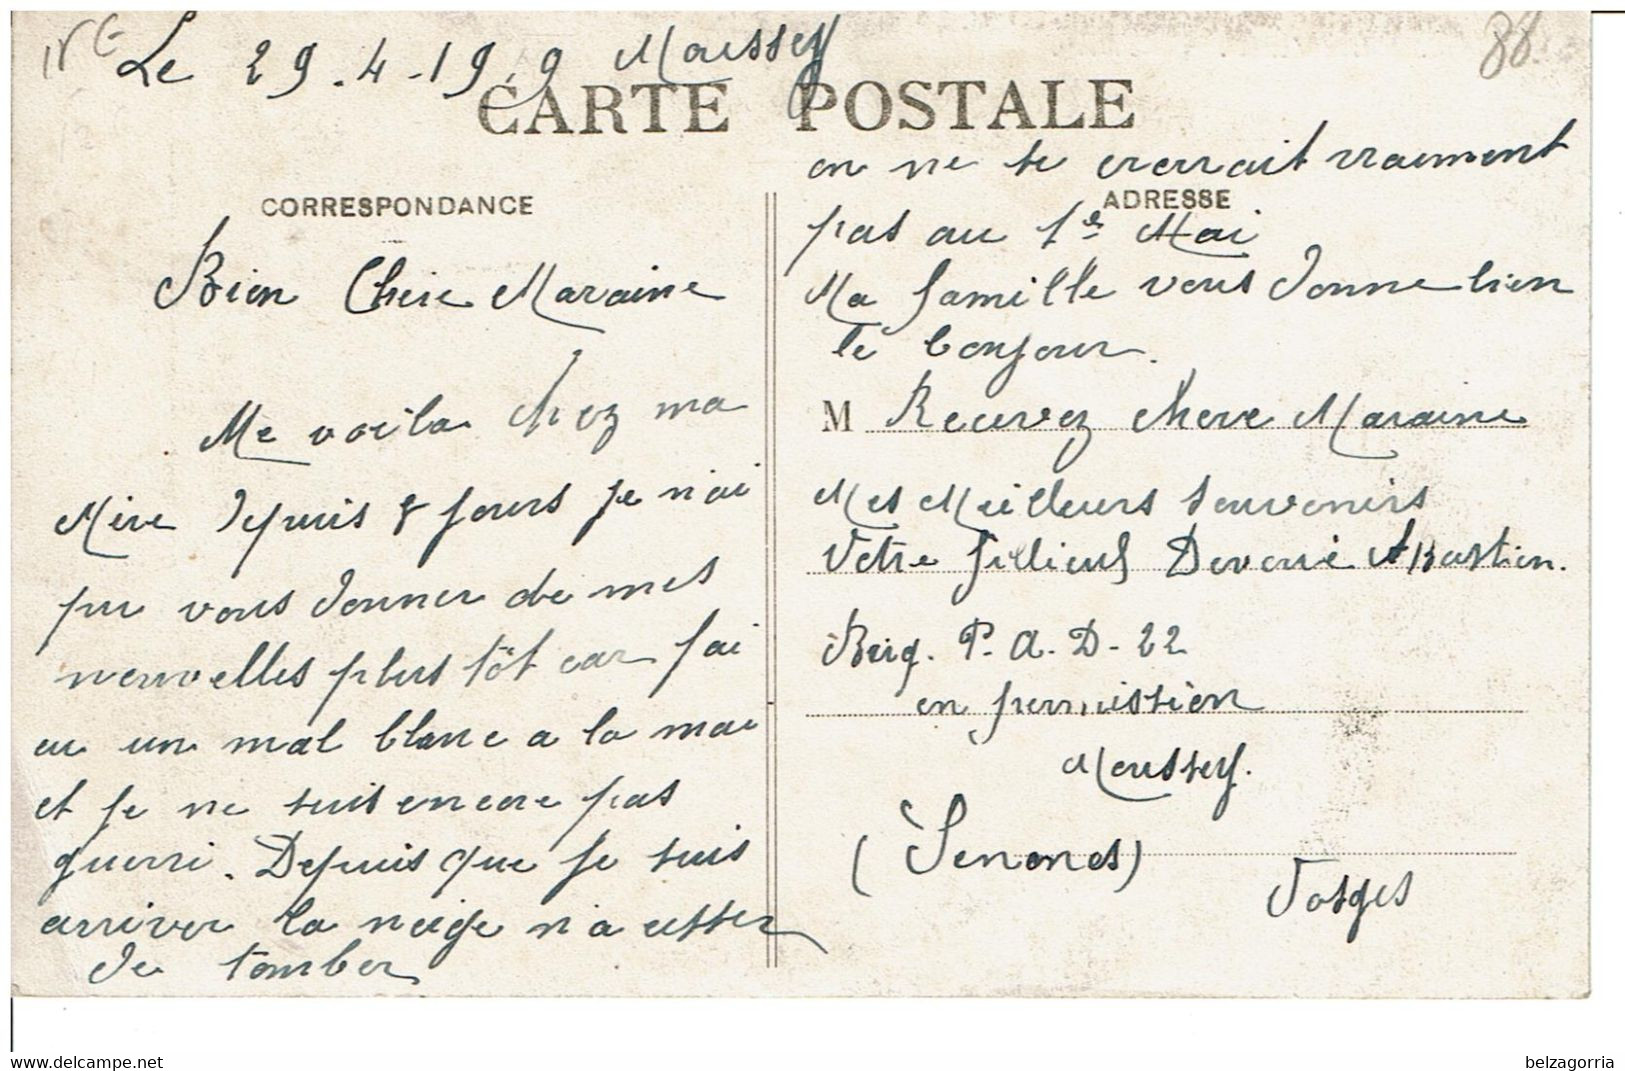 Le 29.4.1919 Moussey
88
CARTE POSTALE
CORRESPONDANCE
Bien Chere Maraine
Me voila chez ma
Mère depuis 8 jours je n'ai
pu vous donner de mes
nouvelles plus tôt car j'ai
eu un mal blanc a la mai
et je ne suis encore pas
guerri. Depuis que je suis
arriver la neige n'a cesser
de tomber
on ne se croirait vraiment
ADRESSE
pas au 1er Mai
Ma famille vous donne bien
le bonjour.
M Recevez chere Maraine
Mes Meilleurs souvenirs
Votre fillieul
Brig. P.A.D-22
en permission
Moussey.
(Senones)
Vosges
delcampe.net
belzagorria